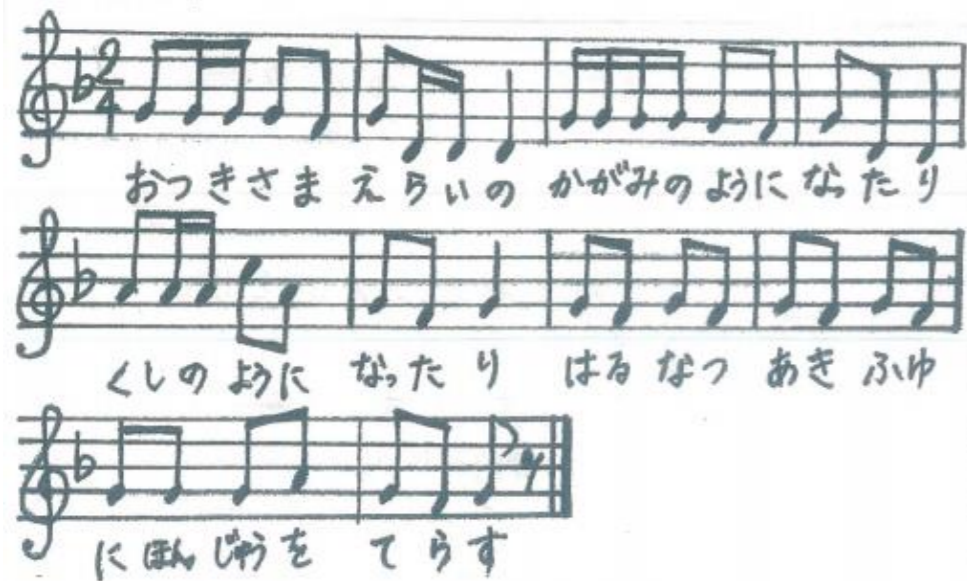 2
4
おつきさま えらいの かがみのように なったり
くしのように なったり はるなつ あきふゆ
にほんじゅうを てらす